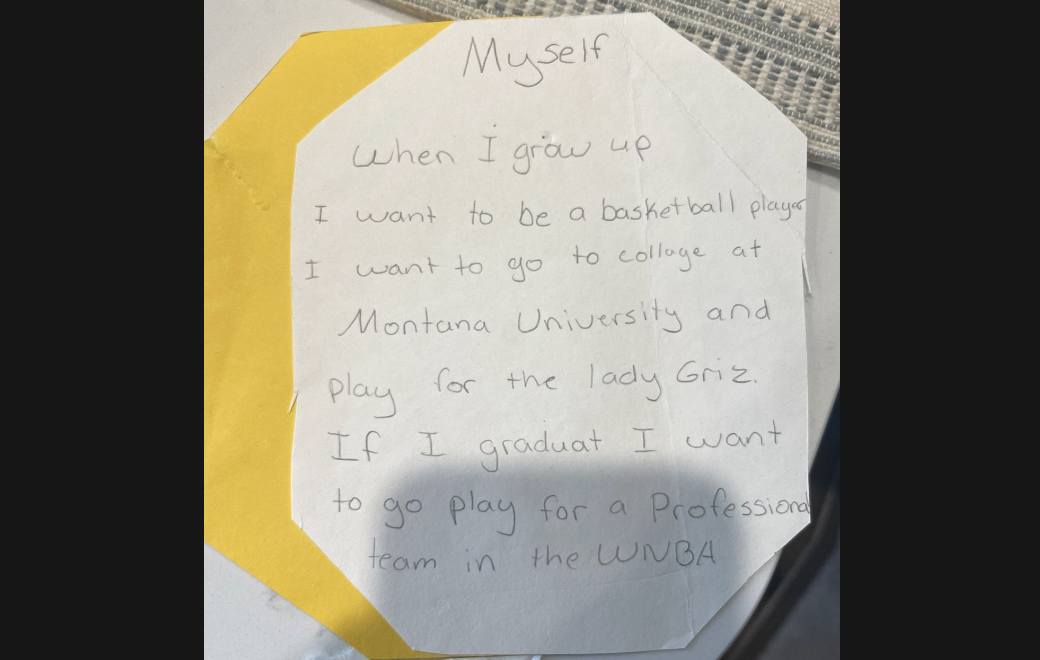 Myself
When I grow up
I want to be a basketball player
I want to go to collage at
Montana University and
play for the lady Griz.
If I graduat I want
to go play for a Professional
team in the WNBA